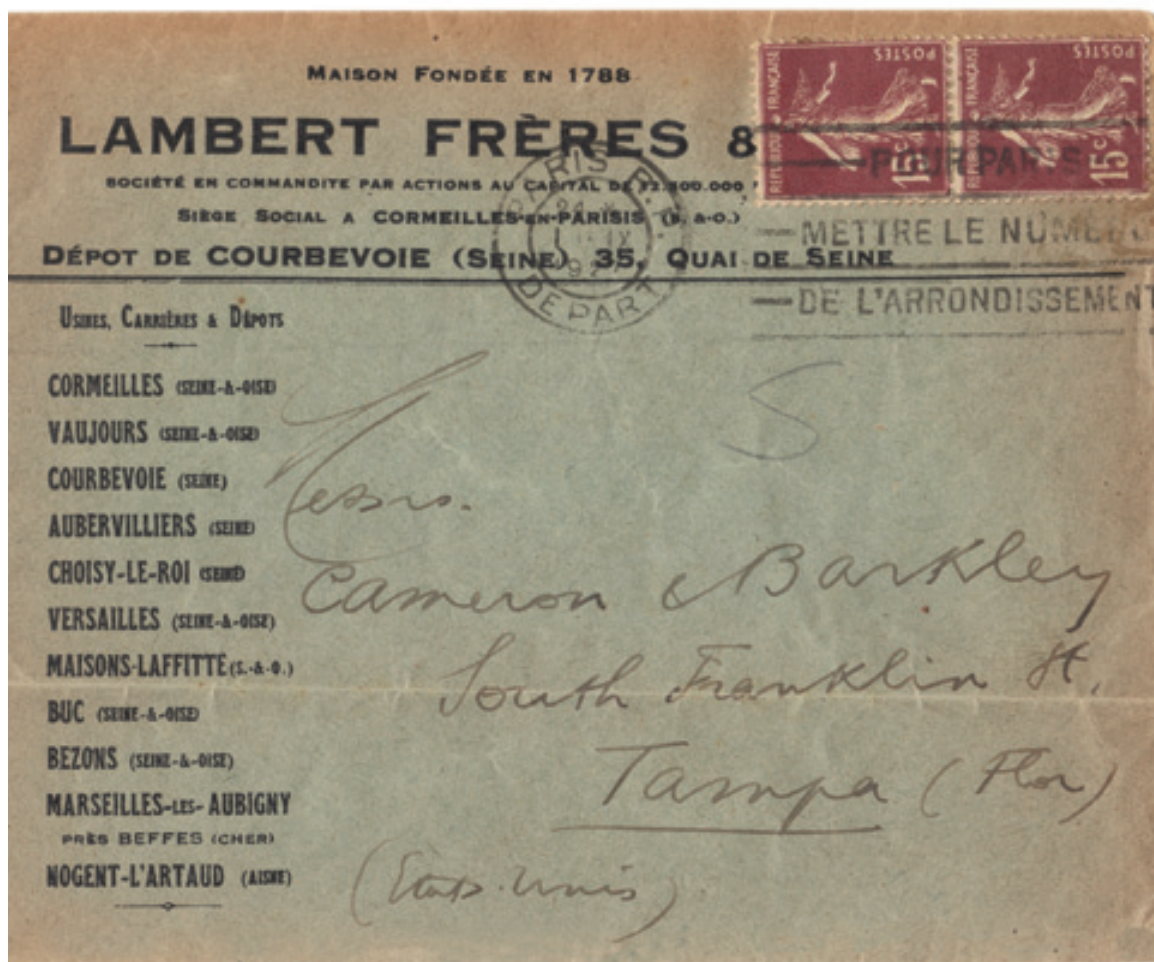 MAISON FONDÉE EN 1788
LAMBERT FRÈRES &
SOCIÉTÉ EN COMMANDITE PAR ACTIONS AU CAPITAL DE
SIÈGE SOCIAL A CORMEILLES-EN-PARISIS (S.-&-O.)
DÉPOT DE COURBEVOIE (SEINE) 35, QUAI DE SEINE
RÉPUBLIQUE FRANÇAISE POSTES 15c
RÉPUBLIQUE FRANÇAISE POSTES 15c
PARIS
DEPART
POUR PARIS
METTRE LE NUMERO
DE L'ARRONDISSEMENT
USINES, CARRIÈRES & DÉPOTS
CORMEILLES (SEINE-&-OISE)
VAUJOURS (SEINE-&-OISE)
COURBEVOIE (SEINE)
AUBERVILLIERS (SEINE)
CHOISY-LE-ROI (SEINE)
VERSAILLES (SEINE-&-OISE)
MAISONS-LAFFITTE (S.-&-O.)
BUC (SEINE-&-OISE)
BEZONS (SEINE-&-OISE)
MARSEILLES-LES-AUBIGNY
PRÈS BEFFES (CHER)
NOGENT-L'ARTAUD (AISNE)
S
Messrs.
Cameron & Barkley
South Franklin St.
Tampa (Flor)
(Etats-Unis)